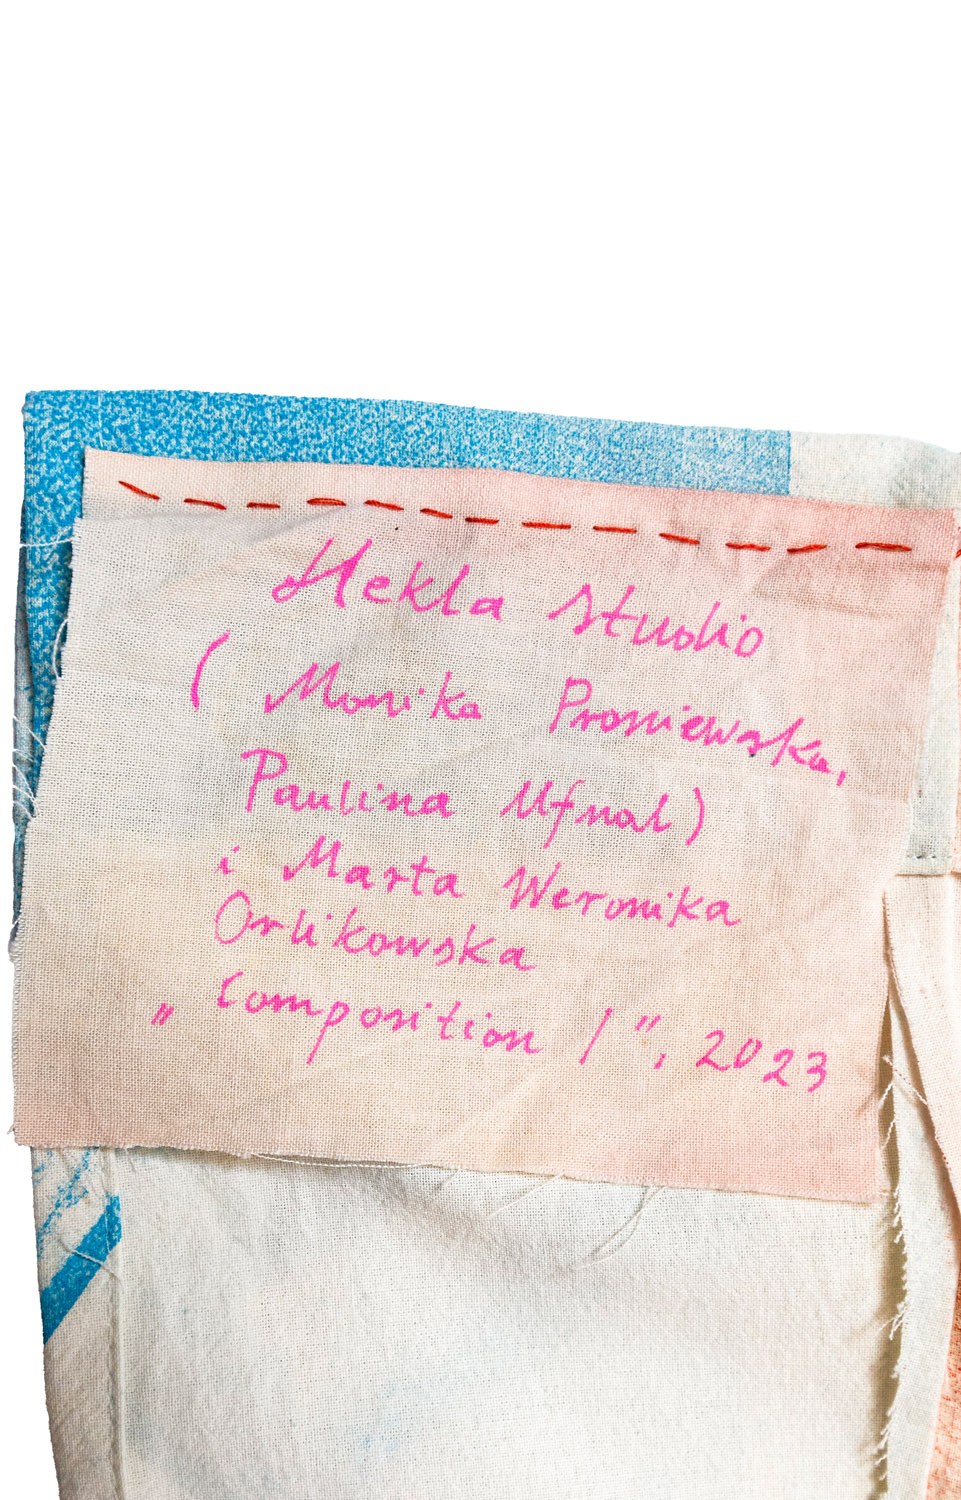 Hekla studio
( Monika Prosniewska,
Paulina Ufnal)
i Marta Weronika
Orlikowska
„ Composition I", 2023